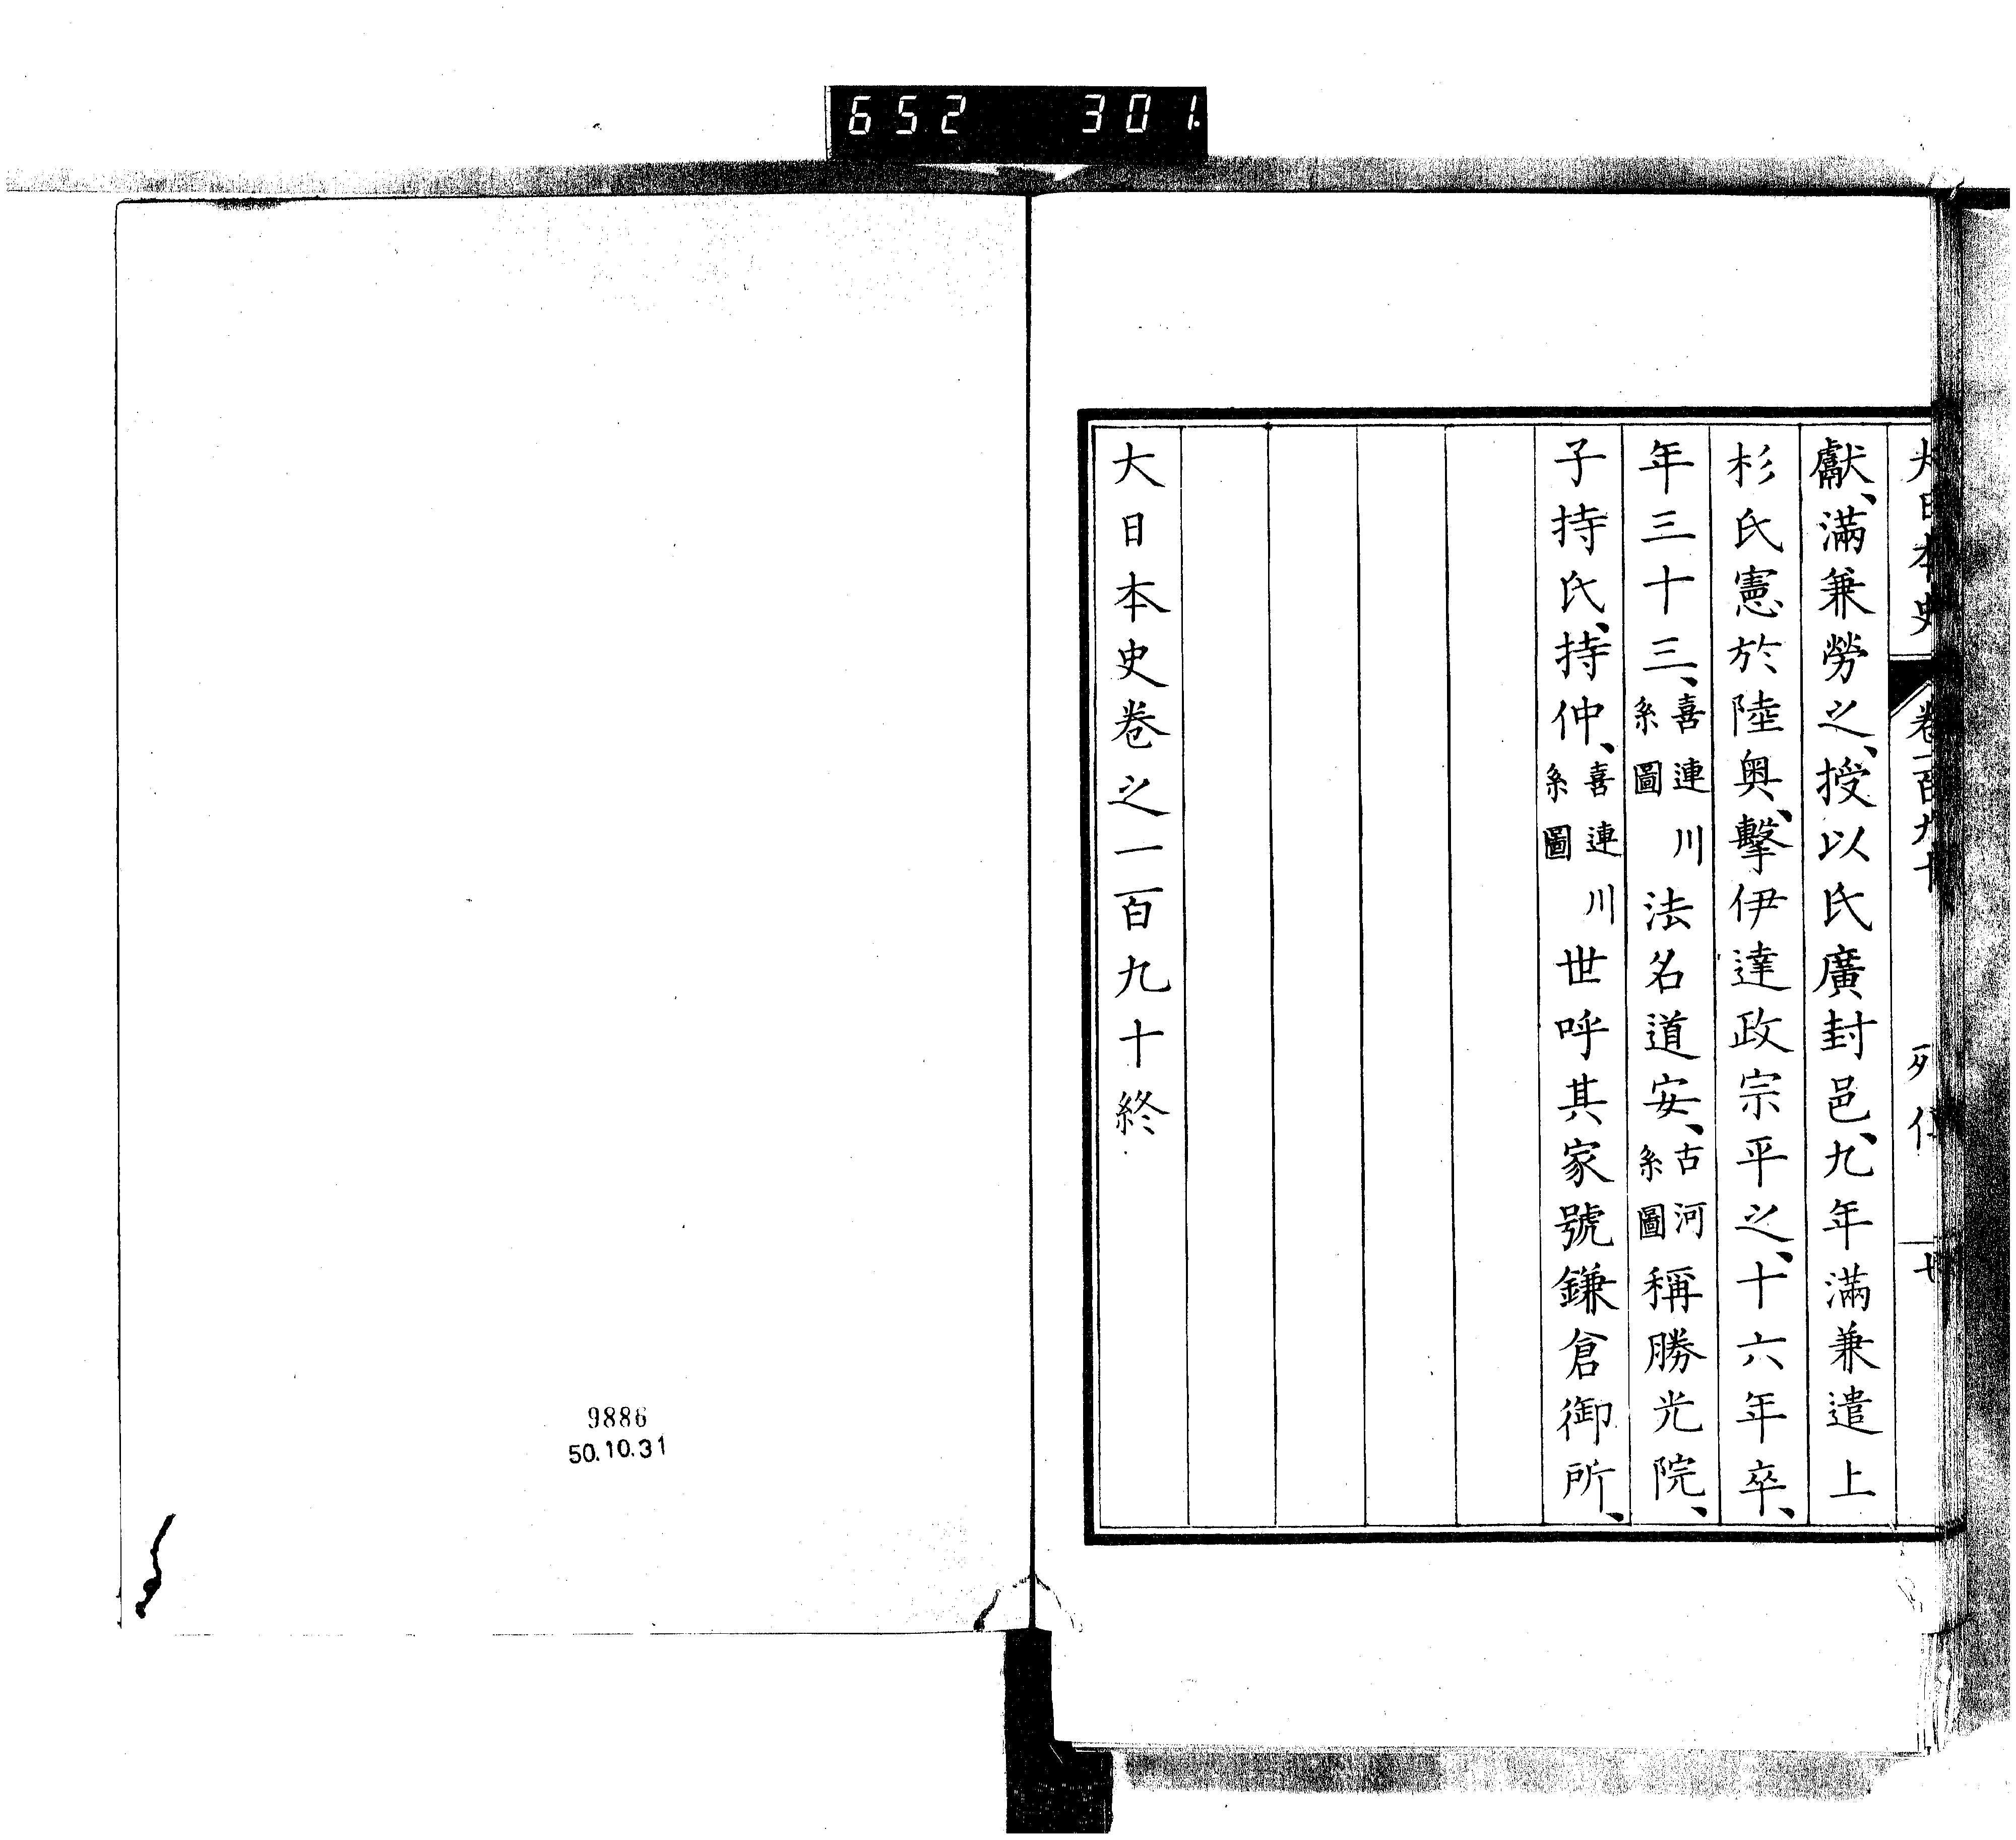 652 301.
大日本史 卷一百九十 列傳
獻、滿兼勞之、授以氏廣封邑、九年滿兼遣上
杉氏憲於陸奥、擊伊達政宗平之、十六年卒、
年三十三、喜連川系圖法名道安、古河系圖稱勝光院、
子持氏、持仲、喜連川系圖世呼其家號鎌倉御所、
大日本史卷之一百九十終
9886
50.10.31